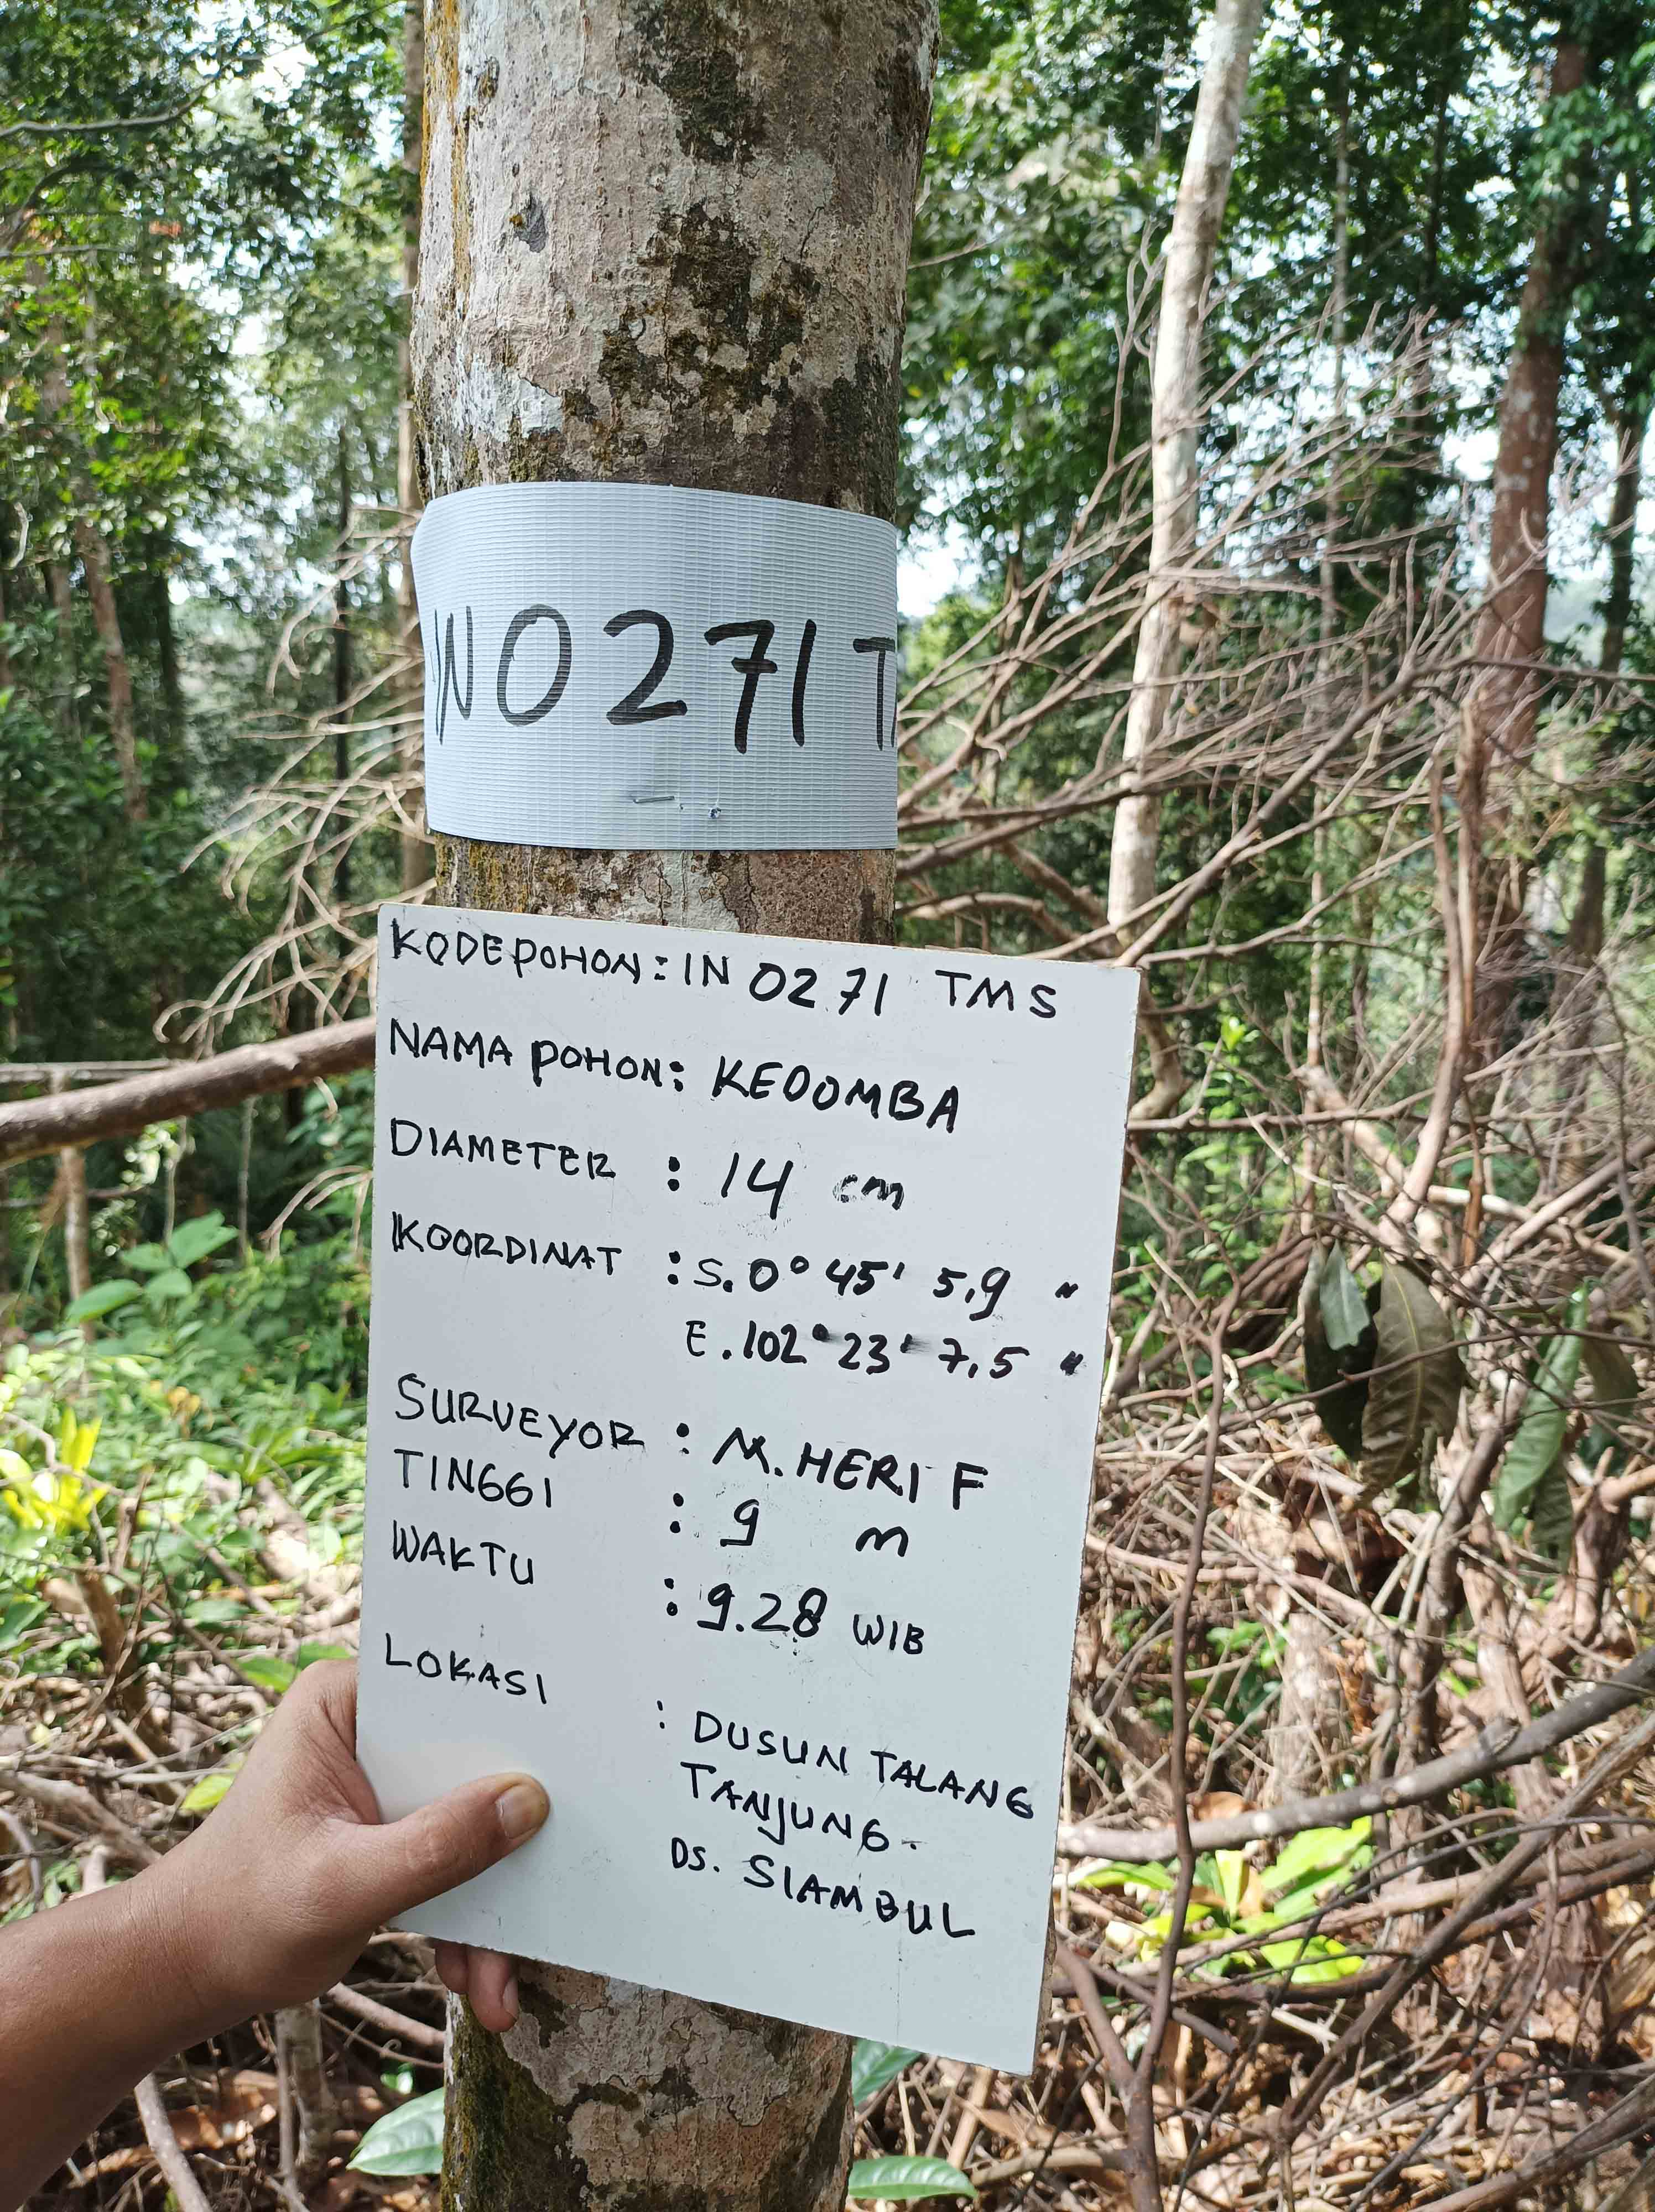 IN 0271 T
KODE POHON : IN 0271 TMS
NAMA POHON : KEDOMBA
DIAMETER : 14 cm
KOORDINAT : S. 0° 45' 5,9 "
E. 102° 23' 7,5 "
SURVEYOR : M. HERI F
TINGGI : 9 m
WAKTU : 9.28 WIB
LOKASI : DUSUN TALANG
TANJUNG.
DS. SIAMBUL